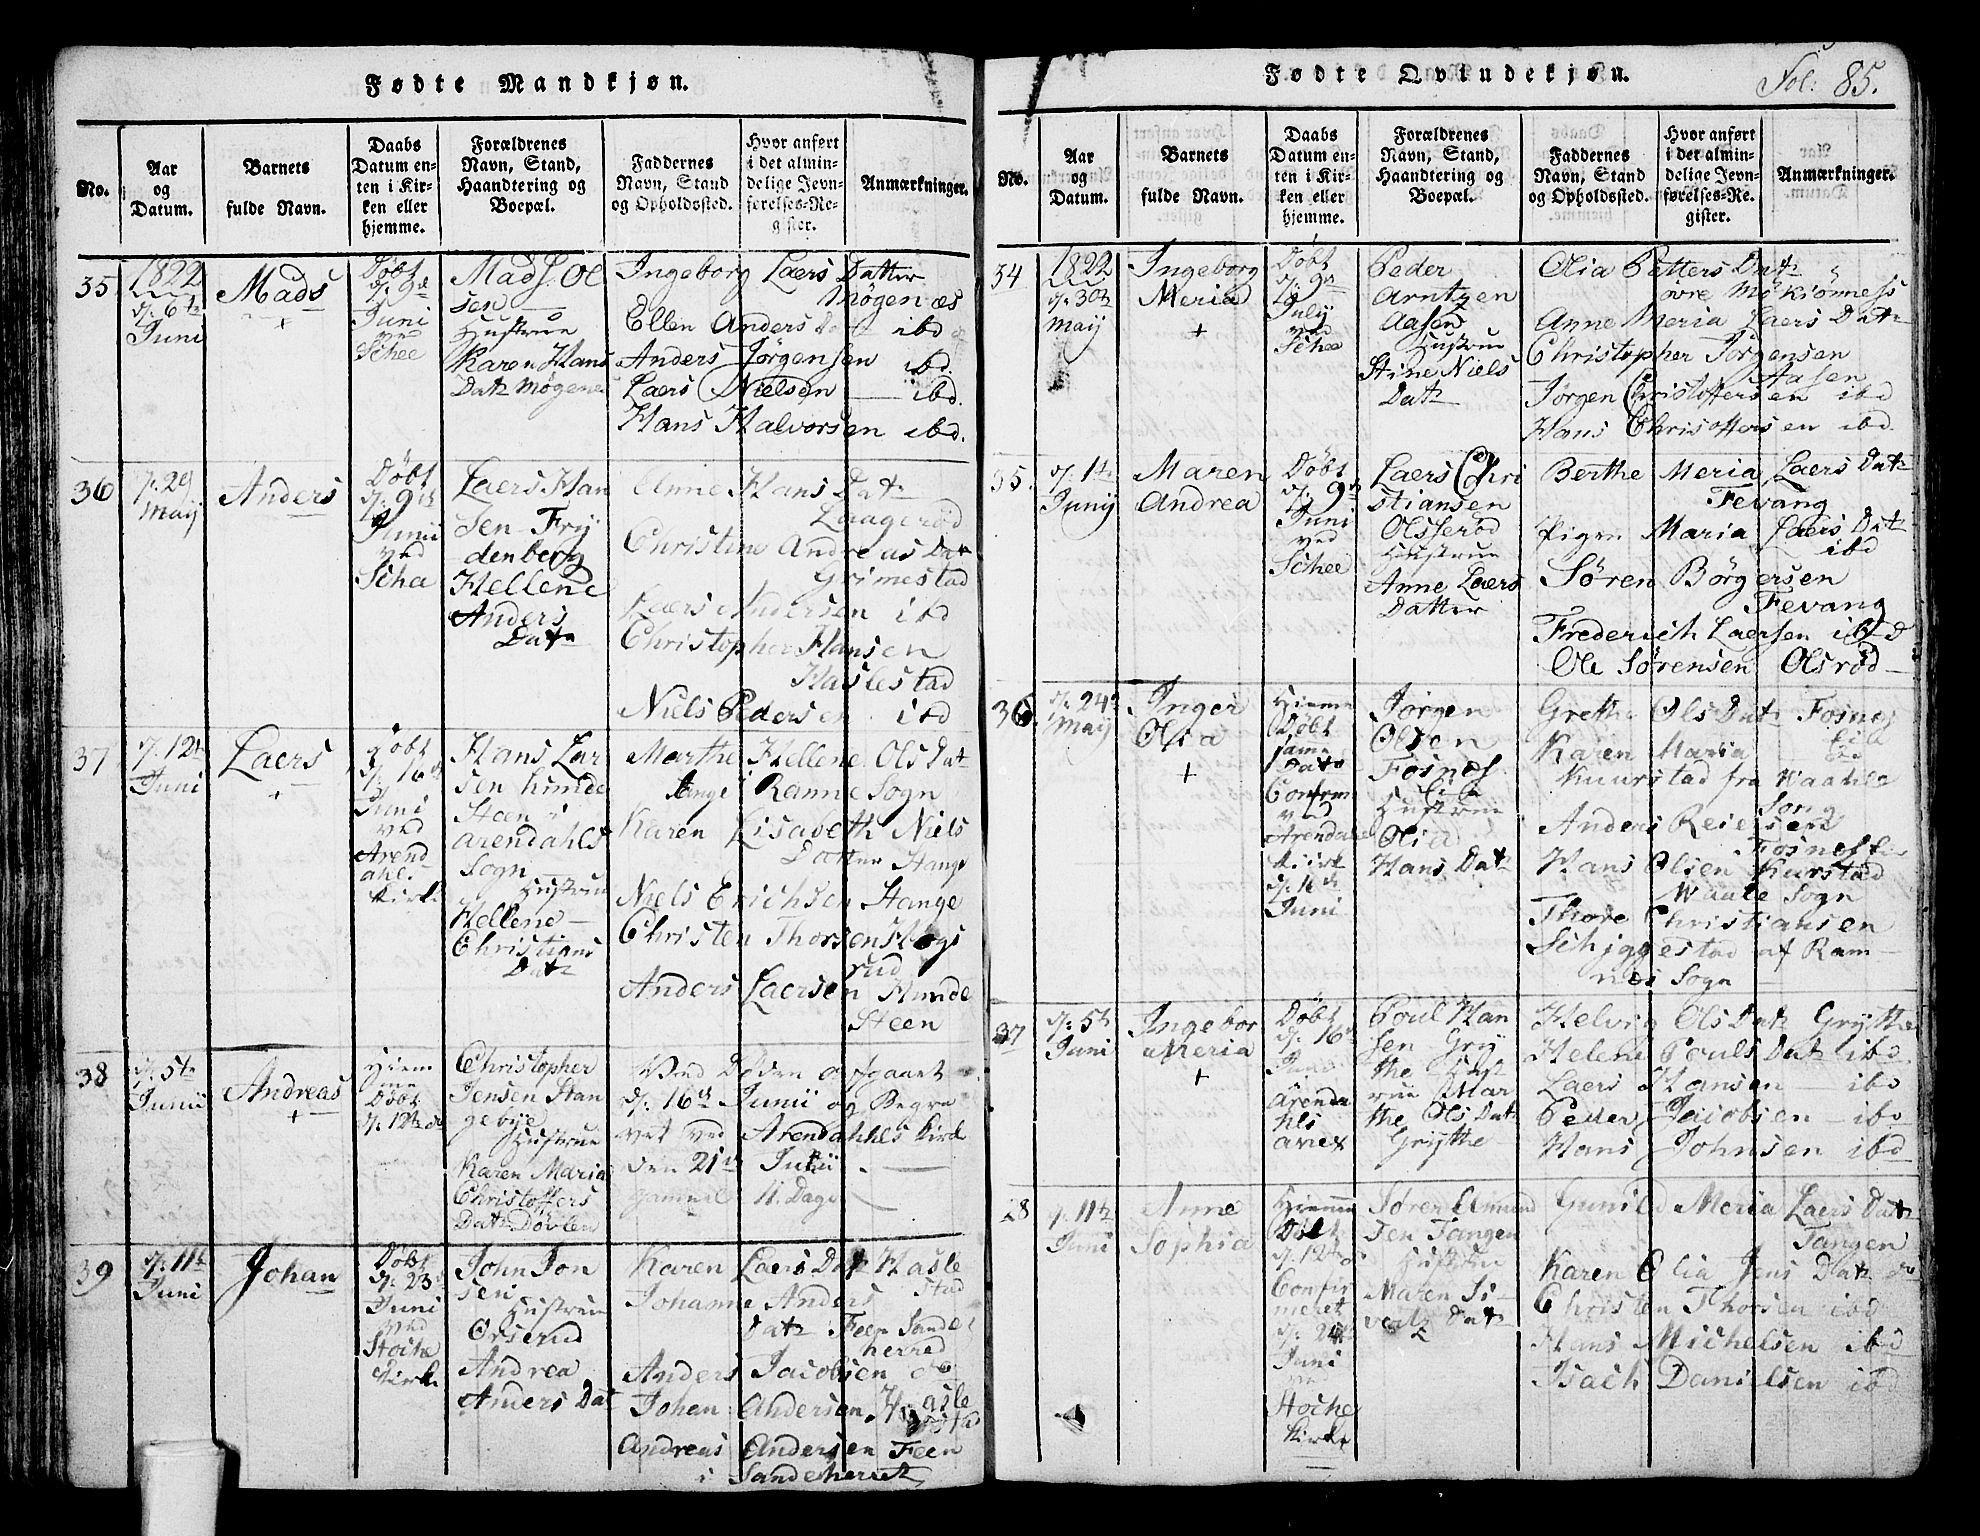 Fødte Mandkjøn.
No.
Aar og Datum.
Barnets fulde Navn.
Daabs Datum enten i Kirken eller hjemme.
Forældrenes Navn, Stand, Haandtering og Boepæl.
Faddernes Navn, Stand og Opholdssted.
Hvor anført i det almindelige Jevnførelses-Register.
Anmærkninger.
35
1822
d. 6te
Juni
Mads
+
Døbt
d. 9de
Juni
ved
Schee
Mads Ol
sen
Hustrue
Karen Hans
Datr Møgenes
Ingeborg Laers Datter
Møgen æs
Ellen Anders Dat ibd
Anders Jørgensen ibd.
Laers Nielsen ibd.
Hans Halvorsen ibd.
36
d. 29
Maij
Anders
Døbt
d. 9de
Junii
ved
Schee
Laers Han
sen Frij
denberg
Hellene
Anders
Datr
Anne Hans Datr
Laagerød
Christine Andreas Datr
Grimestad
Laers Andersen ibd
Christopher Hansen
Haslestad
Niels Pedersen ibd
37
d. 12te
Juni
Laers
+
Døbt
d. 16de
Juni
ved
Arend
ahls
Kirke
Hans Lar
sen Hunde
Steen i
Arendahls
Sogn
Hustrue
Hellene
Christians
Datr
Marthe Hellene Ols Datr
i Ramnes Sogn
Karen Lisabeth Niels
Datter Hange
Niels Erichsen Hange
Christen Thorsen
rud
Anders Laersen Hunde
Steen
38
d. 5te
Junii
Andreas
+
Hiem
me
Døbt
d. 12te
Christopher
Jensen Stan
gebye
Hustrue
Karen Maria
Christoffers
Datr Døvlen
Ved Døden afgaaet
d. 16de Junii og Begra
vet ved Arendahls Kirke
den 21de Junii
gammel 11. Dage
39
d. 11te
Juni
Johan
Døbt
d. 23de
Juni
ved
Stoche
Kirke
John Jon
sen
Hustrue
Orserud
Andrea
Anders Dat
Karen Laers Datr Hasle
stad
Johanne Anders
Datr Feen Sande
herred
Anders Jacobsen do
Johan Andersen Hasle
stad
Andreas Andersen Feen
i Sandeherret
Fødte Qvindekjøn.
Fol: 85.
No.
Aar og Datum.
Barnets fulde Navn.
Daabs Datum enten i Kirken eller hjemme.
Forældrenes Navn, Stand, Haandtering og Boepæl.
Faddernes Navn, Stand og Opholdssted.
Hvor anført i det almindelige Jevnførelses-Register.
Anmærkninger.
34
1822
d. 30te
Maij
Ingeborg
Meria
+
Døbt
d. 9de
July
ved
Schee
Peder
Arntzen
Aasen
Hustrue
Stine Niels
Datr
Olia Petters Datr
øvre Møkiønness
Anne Meria Laers Datr
Christopher Jørgensen
Aasen
Jørgen Christoffersen ibd
Hans Christoffersen ibd.
35.
d. 1te
Junij
Maren
Andrea
Døbt
d. 9de
Juni
ved
Schee
Laers Chri
stiansen
Olsserød
Hustrue
Anne Laers
Datter
Berthe Meria Laers Datr
Fevang
Pigen Maria Laers Datr
ibd
Søren Børgersen
Fevang
Frederich Laersen ibd
Ole Sørensen Olsrød
36
d. 24de
Maij
Inger
Olia
+
Hieme
Døbt
same
Dato
Confirm
ved
Arendals
Kiirke
d. 16de
Juni
Jørgen
Olsen
Fosnes
Hustrue
Olia
Hans Datr
Grethe Ols Datr Fosnes
Karen Maria
Kuurstad fra Waahle
Sogn
Anders Reiersen
Fosnes
Hans Olsen Kurstad
Waale Sogn
Thore Christiansen
Schiggestad af Ram
nes Sogn
37
d. 5te
Juni
Ingebor
Meria
+
Døbt
d. 16de
Juni
Arenda
hls
anex
Poul Han
sen Grÿ
the Hust
rue Mar
the Ols Datr
Grijthe
Helvig Ols Datr Grijthe
Helene Pouls Datr ibd
Laers Hansen ibd
Peder Jacobsen ibd
Hans Johnsen ibd
28
d. 11te
Juni
Anne
Sophia
Hiemme
Døbt
d. 12te
Confir
meret
d. 24de
Juni
ved
Stoche
Kirke
Søren Amund
sen Tangen
Hustrue
Maren Si
verts Datr
Gunild Meria Laers Datr
Tangen
Karen Olia Jens Datr do
Christen Thorsen ibd
Hans Michelsen ibd
Isach Danielsen ibd